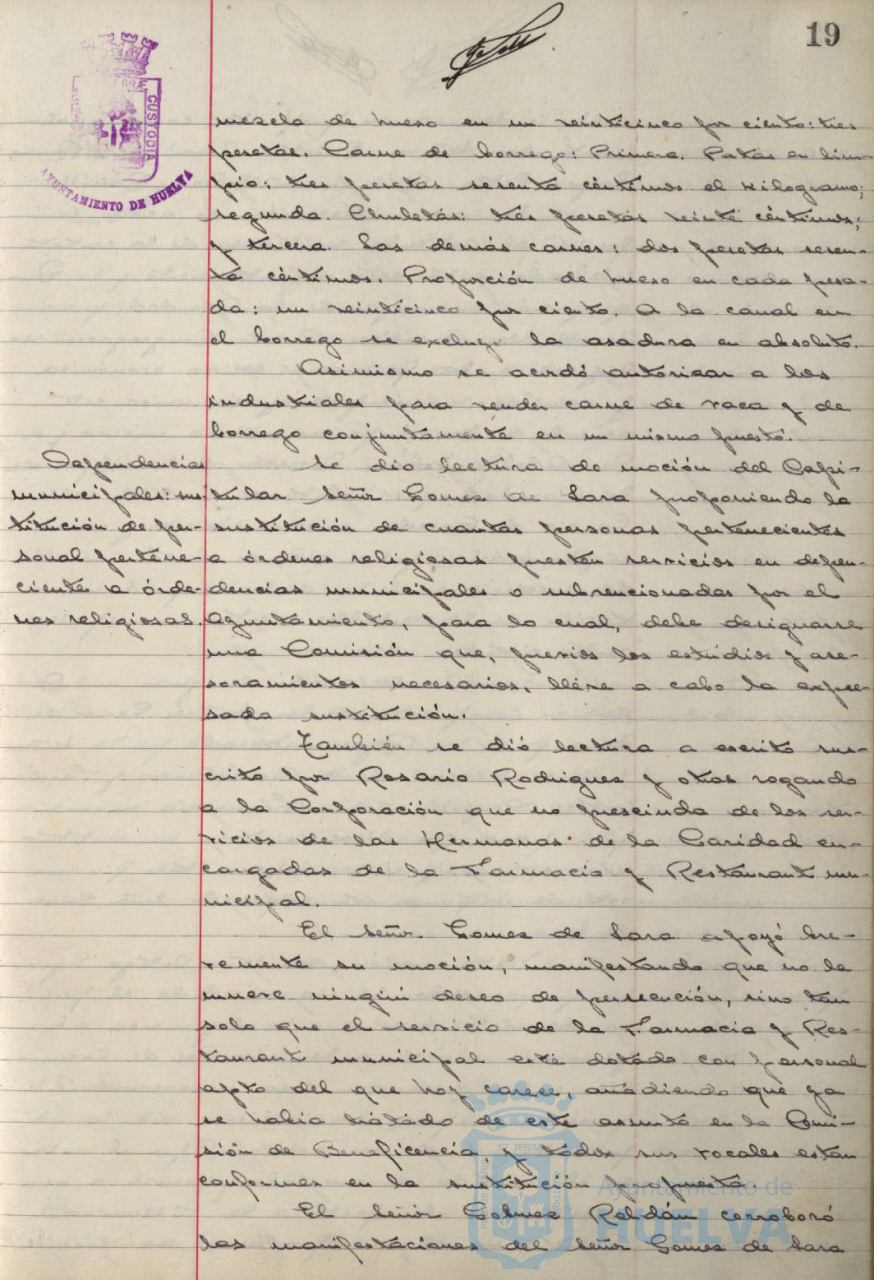 19
CUSTODIA
AYUNTAMIENTO DE HUELVA
mezcla de hueso en un veinticinco por ciento: tres
pesetas. Carne de borrego: Primera. Patas en lim-
pio: tres pesetas sesenta céntimos el kilogramo;
segunda. Chuletas: tres pesetas veinte céntimos;
y tercera. Las demás carnes: dos pesetas sesen-
ta céntimos. Proporción de hueso en cada pesa-
da: un veinticinco por ciento. A la canal en
el borrego se excluye la asadura en absoluto.
Asimismo se acordó autorizar a los
industriales para vender carne de vaca y de
borrego conjuntamente en un mismo puesto.
Dependencias
municipales: sus
titución de per-
sonal pertene-
ciente a órde-
nes religiosas.
Se dio lectura de moción del Capi-
tular Señor Gomez de Lara proponiendo la
sustitución de cuantas personas pertenecientes
a órdenes religiosas presten servicios en depen-
dencias municipales o subvencionadas por el
Ayuntamiento, para lo cual, debe designarse
una Comisión que, previos los estudios y ase-
soramientos necesarios, lleve a cabo la expre-
sada sustitución.
También se dió lectura a escrito sus-
crito por Rosario Rodriguez y otras rogando
a la Corporación que no prescinda de los ser-
vicios de las Hermanas de la Caridad en-
cargadas de la Farmacia y Restaurant mu-
nicipal.
El Señor Gomez de Lara apoyó bre-
vemente su moción, manifestando que no le
mueve ningún deseo de persecución, sino tan
solo que el servicio de la Farmacia y Res-
taurant municipal esté dotado con personal
apto del que hoy carece, añadiendo que ya
se habia tratado de este asunto en la Comi-
sión de Beneficencia, y todos sus vocales estan
conformes en la sustitución propuesta.
El Señor Gomez Roldán corroboró
las manifestaciones del Señor Gomez de Lara
Ayuntamiento de
HUELVA